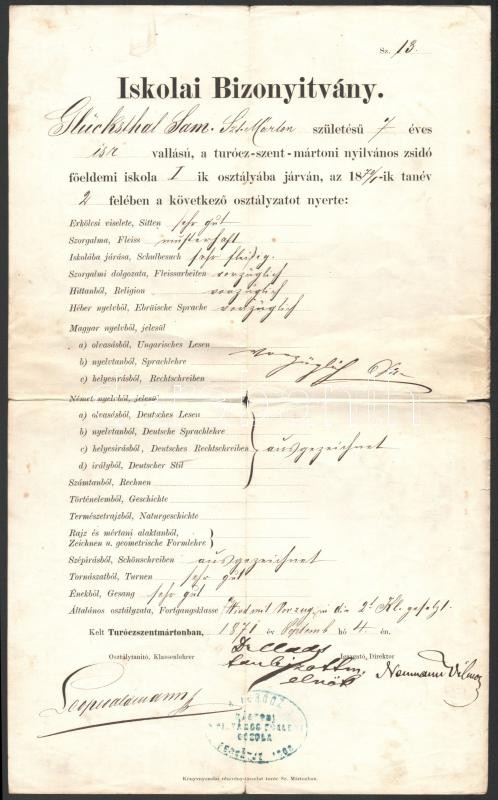 Sz. 13.
Iskolai Bizonyitvány.
Glücksthal Sam. Szt Márton születésü 7 éves
isr vallású, a turócz-szent-mártoni nyilvános zsidó
főelemi iskola I ik osztályába járván, az 1870/1-ik tanév
2 felében a következő osztályzatot nyerte:
Erkölcsi viselete, Sitten sehr gut
Szorgalma, Fleiss musterhaft
Iskolába járása, Schulbesuch sehr fleißig.
Szorgalmi dolgozata, Fleissarbeiten vorzüglich
Hittanból, Religion vorzüglich
Héber nyelvből, Ebräische Sprache vorzüglich
Magyar nyelvből, jelesül
a) olvasásból, Ungarisches Lesen
b) nyelvtanból, Sprachlehre vorzüglich
c) helyesirásból, Rechtschreiben
Német nyelvből, jelesül
a) olvasásból, Deutsches Lesen
b) nyelvtanból, Deutsche Sprachlehre
c) helyesirásból, Deutsches Rechtschreiben ausgezeichnet
d) irályból, Deutscher Stil
Számtanból, Rechnen
Történelemből, Geschichte
Természetrajzból, Naturgeschichte
Rajz és mértani alaktanból,
Zeichnen u. geometrische Formlehre
Szépirásból, Schönschreiben ausgezeichnet
Tornászatból, Turnen sehr gut
Énekből, Gesang sehr gut
Általános osztályzata, Fortgangsklasse Wird mit Vorzug in die 2te Kl. gesetzt.
Kelt Turóczszentmártonban, 1871 év Septemb hó 4. én.
Osztálytanító, Klassenlehrer
Igazgató, Director
elnök
Neumann Vilmos
Könyvnyomdai részvény-társulat turócz Sz. Mártonban.